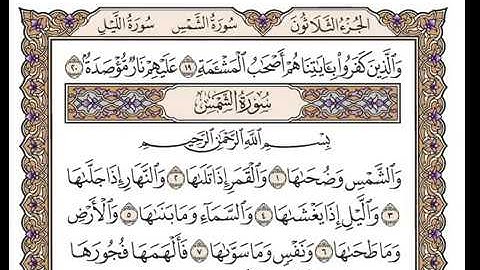 الجزء الثلاثون سورة الشمس سورة الليل
وَٱلَّذِينَ كَفَرُوا۟ بِـَٔايَٰتِنَا هُمْ أَصْحَٰبُ ٱلْمَشْـَٔمَةِ ١٩ عَلَيْهِمْ نَارٌ مُّؤْصَدَةٌۢ ٢٠
سُورَةُ الشَّمْسِ
بِسْمِ ٱللَّهِ ٱلرَّحْمَٰنِ ٱلرَّحِيمِ
وَٱلشَّمْسِ وَضُحَىٰهَا ١ وَٱلْقَمَرِ إِذَا تَلَىٰهَا ٢ وَٱلنَّهَارِ إِذَا جَلَّىٰهَا
٣ وَٱلَّيْلِ إِذَا يَغْشَىٰهَا ٤ وَٱلسَّمَآءِ وَمَا بَنَىٰهَا ٥ وَٱلْأَرْضِ
وَمَا طَحَىٰهَا ٦ وَنَفْسٍ وَمَا سَوَّىٰهَا ٧ فَأَلْهَمَهَا فُجُورَهَا